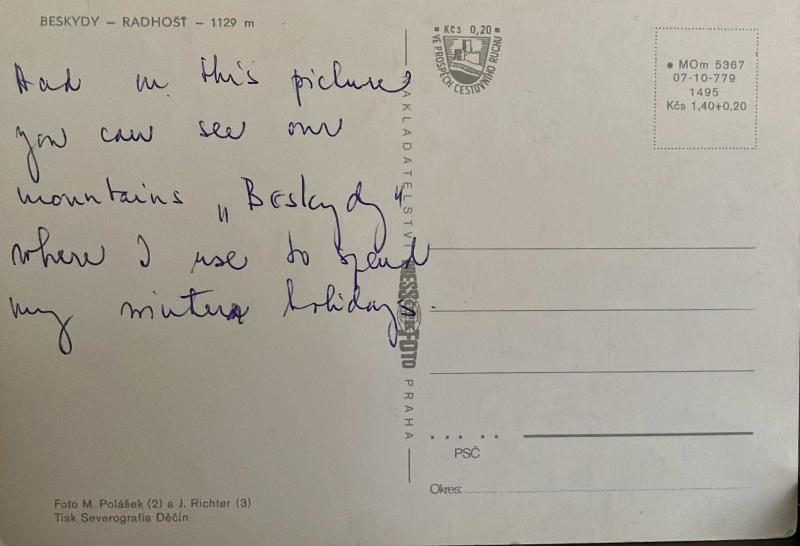 BESKYDY – RADHOŠŤ – 1129 m
And in this picture
you can see our
mountains „Beskydy"
where I use to spend
my winter holidays.
Foto M. Polášek (2) a J. Richter (3)
Tisk Severografia Děčín
NAKLADATELSTVÍ PRESSFOTO PRAHA
Kčs 0,20
VE PROSPĚCH CESTOVNÍHO RUCHU
MOm 5367
07-10-779
1495
Kčs 1,40+0,20
PSČ
Okres: